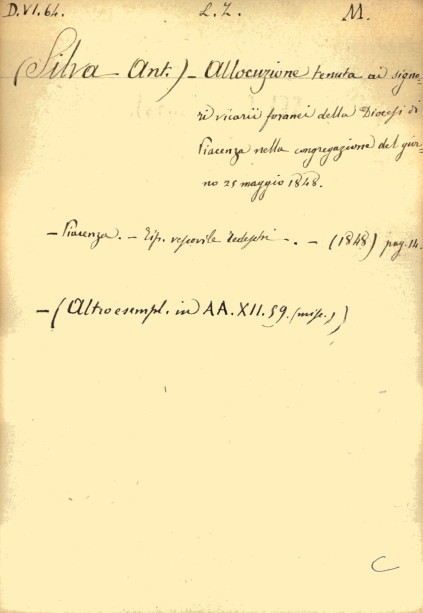 D.VI.64. L. Z. M.
(Silva Ant.) - Allocuzione tenuta ai signo-
ri vicarii foranei della Diocesi di
Piacenza nella congregazione del gior-
no 25 maggio 1848.
- Piacenza. - Tip. vescovile Tedeschi - . - (1848) pag. 14.
- (Altro esempl. in AA.XII.59. (misc.))
C